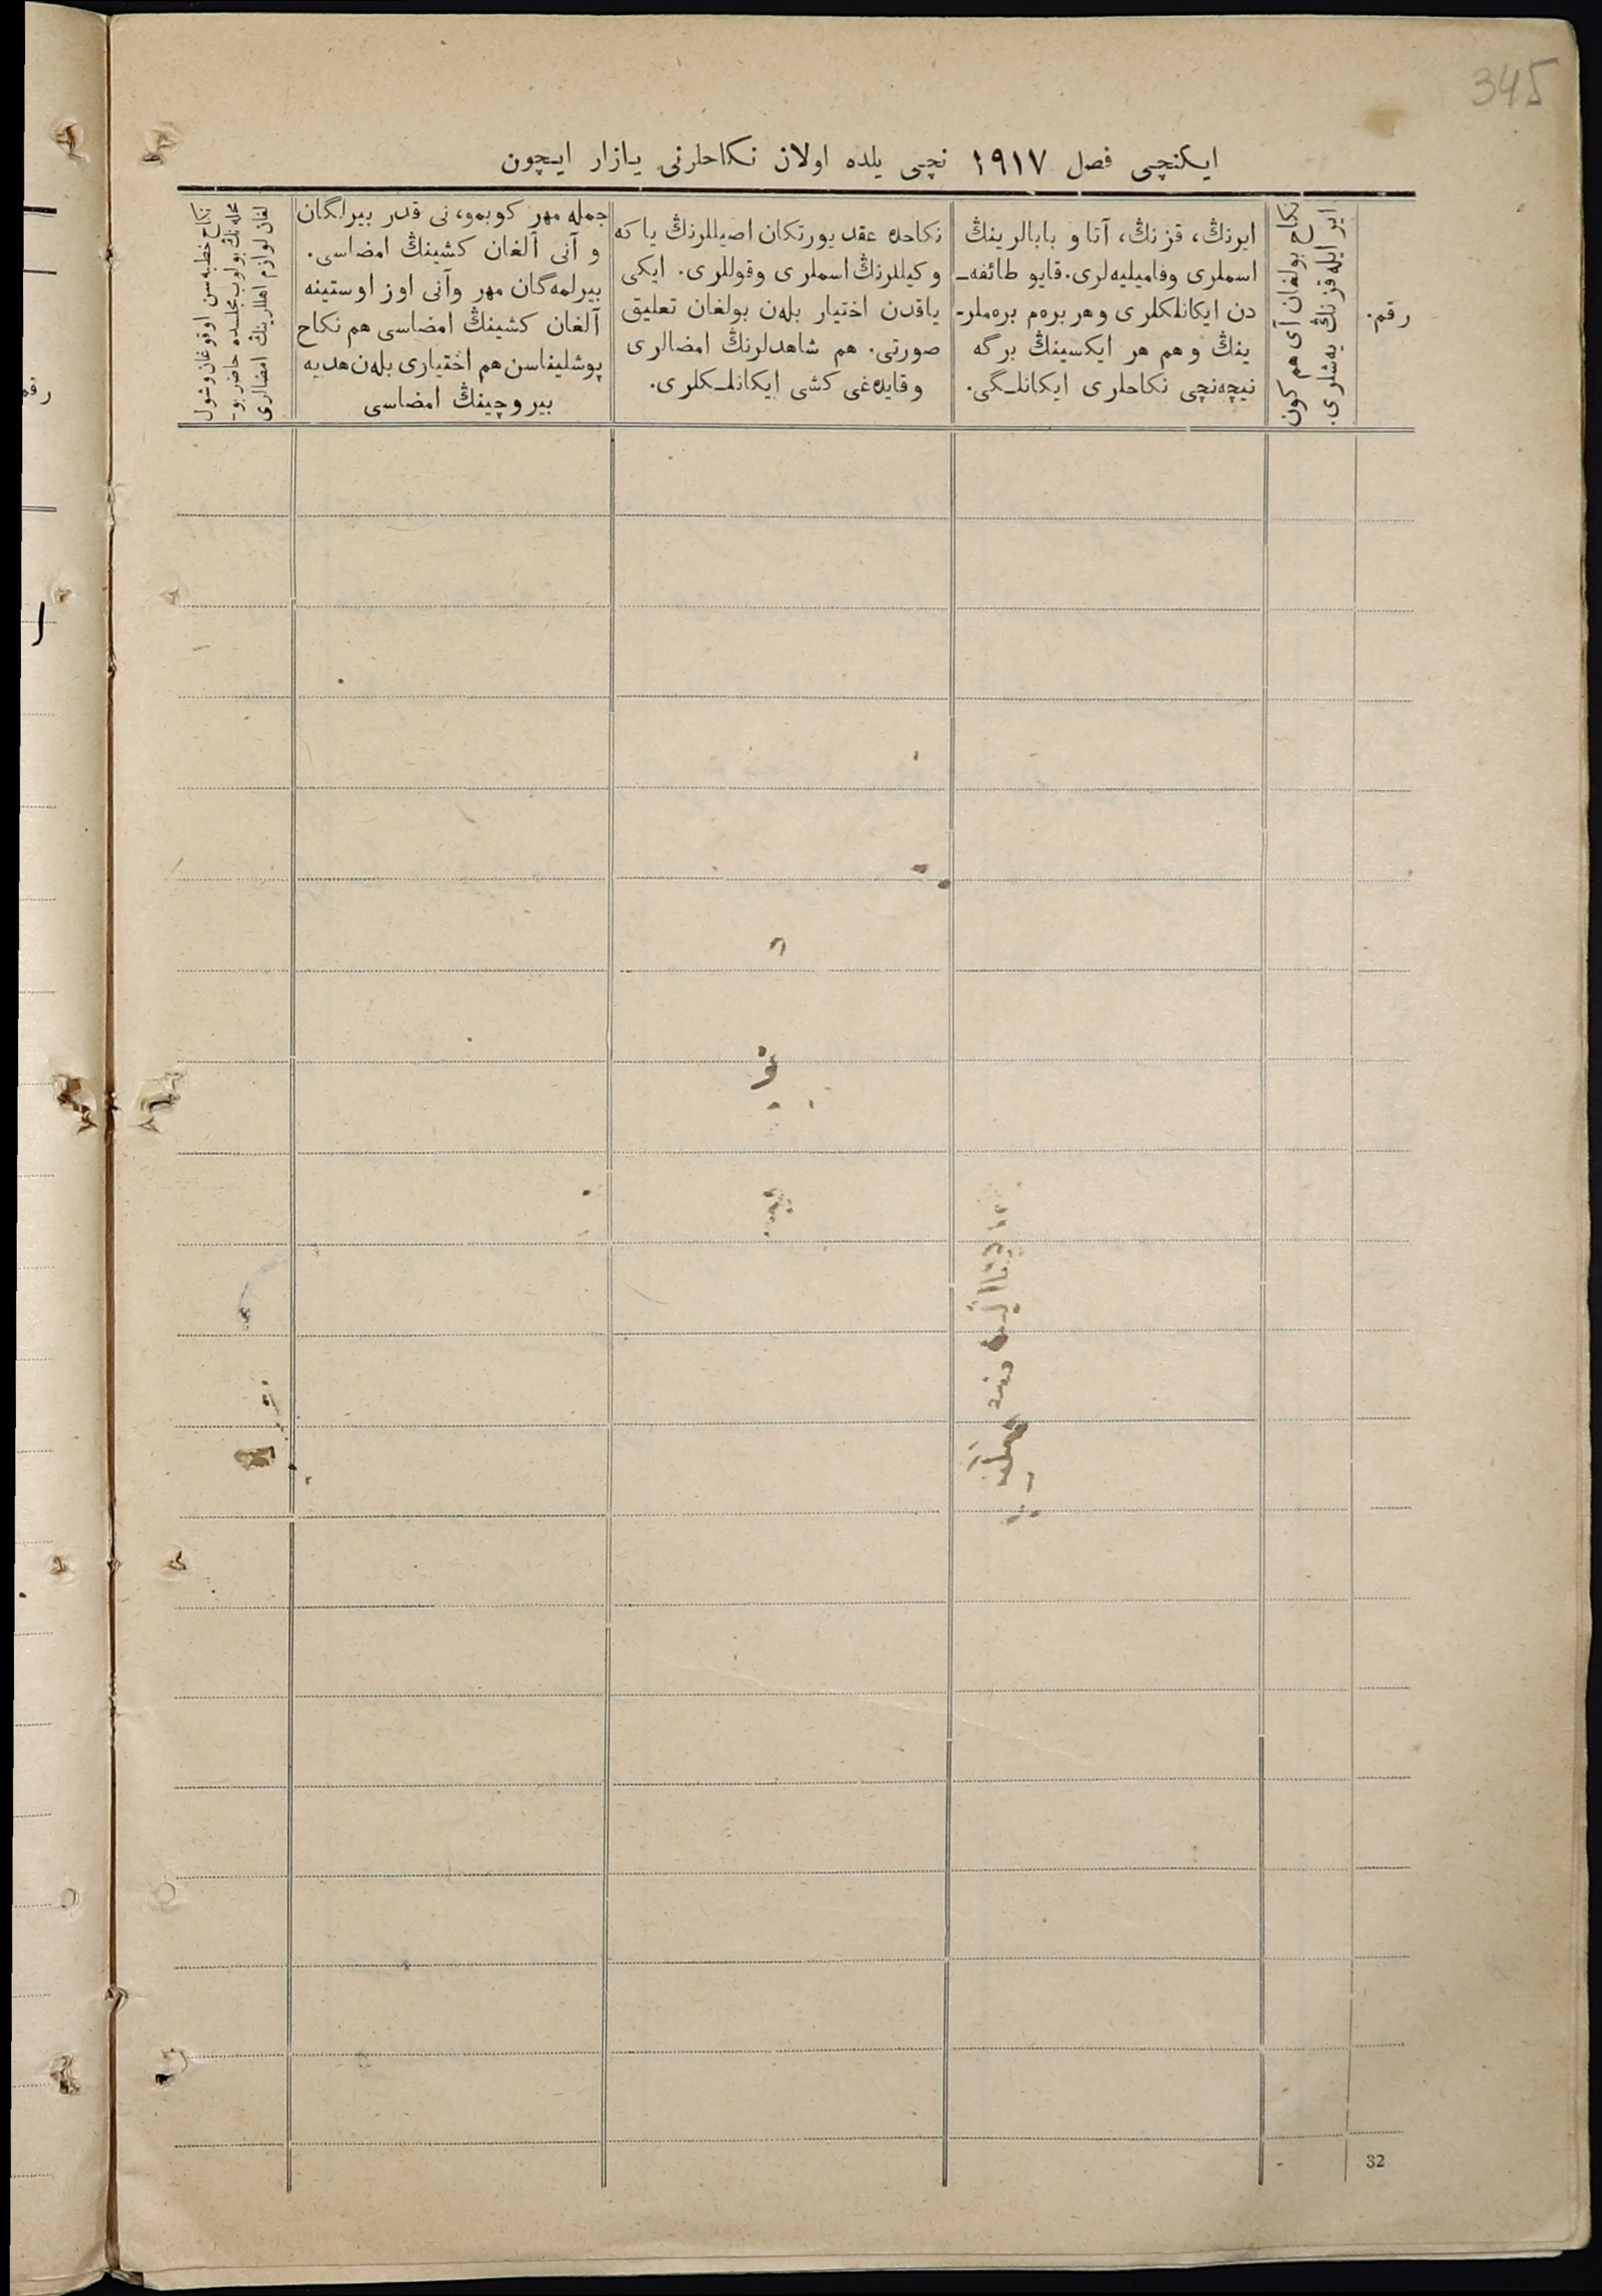 345
ایکنچی فصل ۱۹۱۷ نچی یلده اولان نکاحلرنی یازار ایچون
رقم.
ایر ایله قزنڭ یه‌شلری.
نکاح بولغان آی هم کون
ایرنڭ، قزنڭ، آتا و بابالرینڭ
اسملری وفامیلیه‌لری. قایو طائفه‌ـ
دن ایکانلکلری وهر بره‌م بره‌ملرـ
ینڭ وهم هر ایکسینڭ برگه
نیچه‌نچی نکاحلری ایکانلـگی.
نکاحده عقد یورتکان اصیللرنڭ یاکه
وکیللرنڭ اسملری وقوللری. ایکی
یاقدن اختیار بله‌ن بولغان تعلیق
صورتی. هم شاهدلرنڭ امضالری
وقایده‌غی کشی ایکانلـکلری.
جمله مهر کوبمو، نی قدر بیرلگان
و آنی آلغان کشینڭ امضاسی.
بیرلمه‌گان مهر وآنی اوز اوستینه
آلغان کشینڭ امضاسی هم نکاح
پوشلیناسن هم اختیاری بله‌ن هدیه
بیروچینڭ امضاسی
نکاح خطبه‌سن اوقوغان وشول
محله‌نڭ بولوب مجلسده حاضر بوـ
لغان لوازم اهللرینڭ امضالری
رقم
32